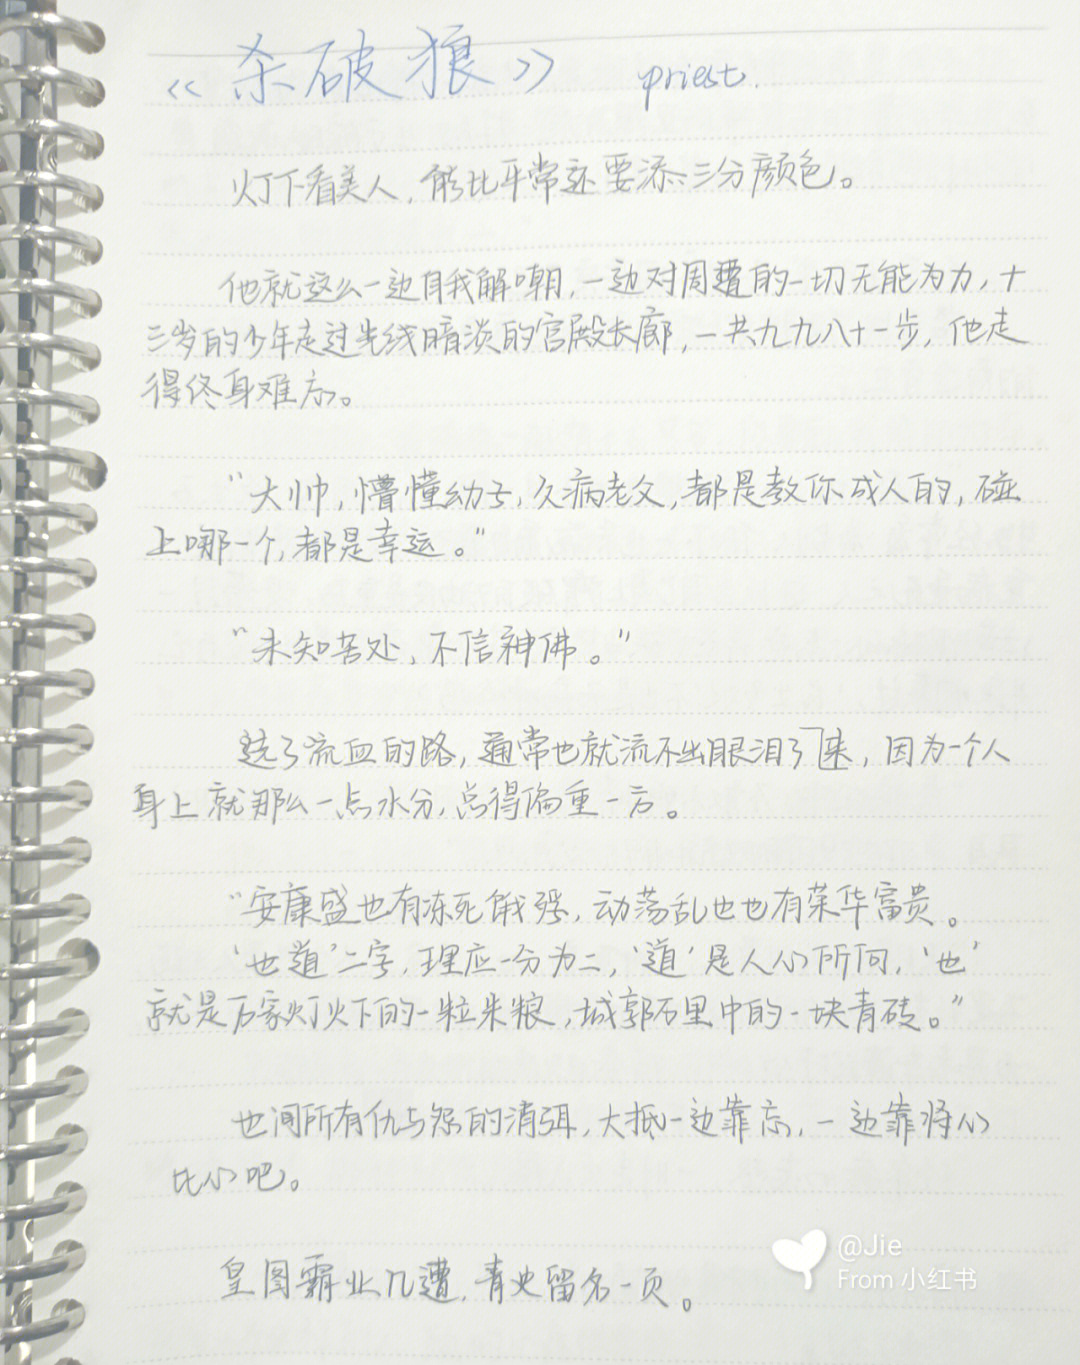 《杀破狼》 priest.
灯下看美人，能比平常还要添三分颜色。
他就这么一边自我解嘲，一边对周遭的一切无能为力，十
三岁的少年走过光线暗淡的宫殿长廊，一共九九八十一步，他走
得终身难忘。
“大帅，懵懂幼子，久病老父，都是教你成人的，碰
上哪一个，都是幸运。”
“未知苦处，不信神佛。”
选了流血的路，通常也就流不出眼泪了来，因为一个人
身上就那么一点水分，总得偏重一方。
“安康盛世有冻死饿殍，动荡乱世也有荣华富贵。
‘世道’二字，理应一分为二，‘道’是人心所向，‘世’
就是万家灯火下的一粒米粮，城郭万里中的一块青砖。”
世间所有仇与怨的消弭，大抵一边靠忘，一边靠将心
比心吧。
皇图霸业几遭，青史留名一页。
@Jie
From 小红书